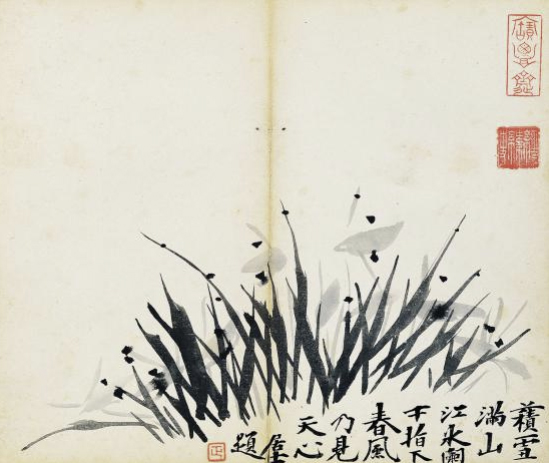 積雪
滿山
江水闌
干指下
春風
乃見
天心
居士
題